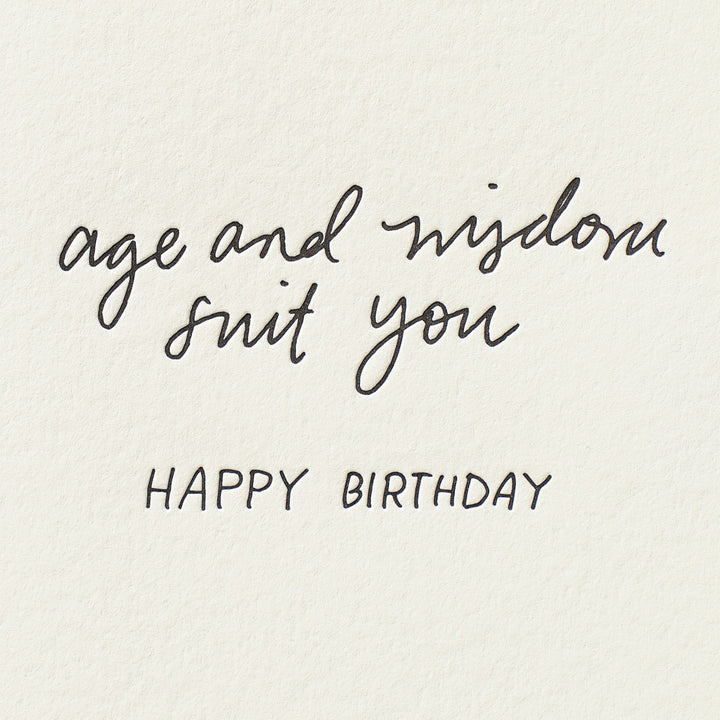 age and wisdom
suit you
HAPPY BIRTHDAY